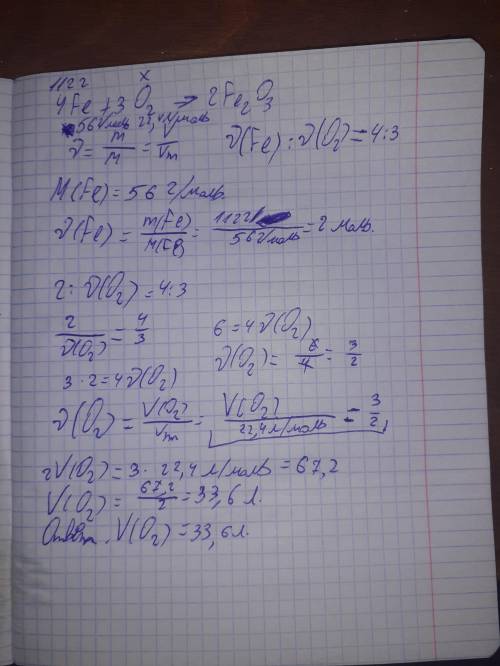 112г x
4Fe + 3O₂ → 2Fe₂O₃
56г/моль 22,4л/моль
ν = m/M = V/Vm ν(Fe) : ν(O₂) = 4:3
M(Fe) = 56 г/моль.
ν(Fe) = m(Fe)/M(Fe) = 112г/56г/моль = 2 моль.
2 : ν(O₂) = 4:3
2/ν(O₂) = 4/3 6 = 4ν(O₂)
ν(O₂) = 6/4 = 3/2
3·2 = 4ν(O₂)
ν(O₂) = V(O₂)/Vm = V(O₂)/22,4л/моль = 3/2
2V(O₂) = 3·22,4л/моль = 67,2
V(O₂) = 67,2/2 = 33,6 л.
Ответ. V(O₂) = 33,6л.